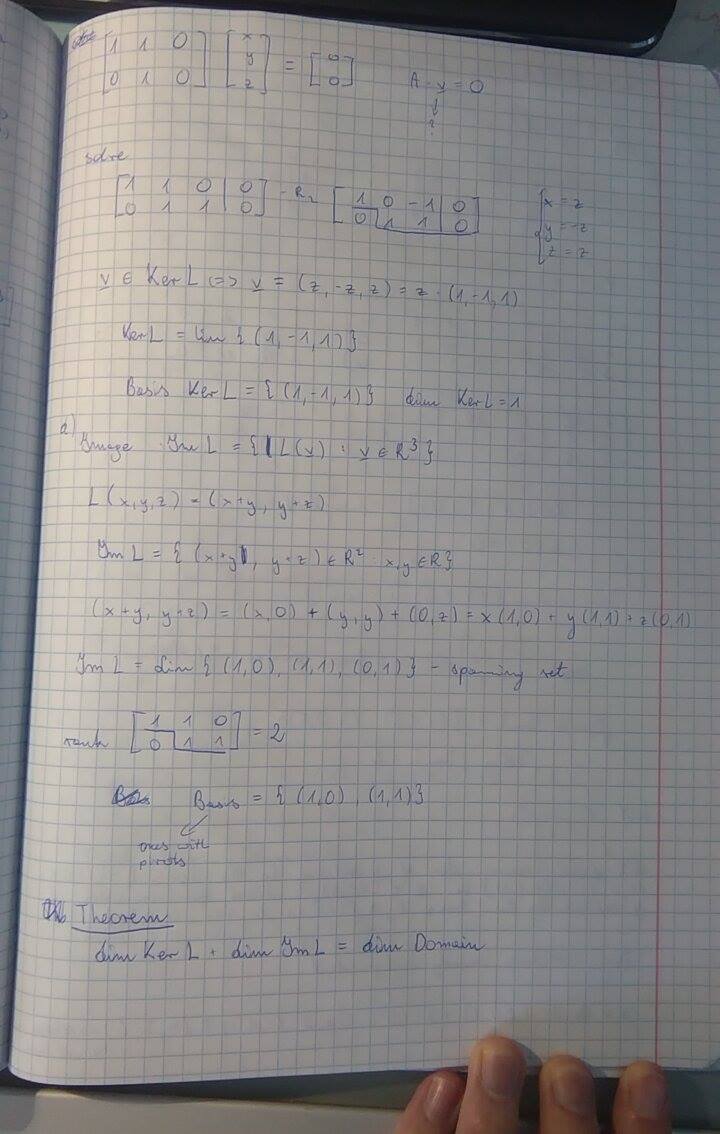 [1 1 0] [x] = [0]
[0 1 0] [y]   [0]
        [z]
A · v = 0
↓
?
solve
[1 1 0 | 0] - R2 [1 0 -1 | 0]
[0 1 1 | 0]      [0 1 1 | 0]
{x = z
y = -z
z = z
v ∈ Ker L <=> v = (z, -z, z) = z · (1, -1, 1)
Ker L = lin { (1, -1, 1) }
Basis Ker L = { (1, -1, 1) } dim Ker L = 1
d) Image Im L = { L(v) : v ∈ R³ }
L(x, y, z) = (x+y, y+z)
Im L = { (x+y, y+z) ∈ R² : x, y ∈ R }
(x+y, y+z) = (x, 0) + (y, y) + (0, z) = x(1,0) + y(1,1) + z(0,1)
Im L = lin { (1,0), (1,1), (0,1) } - spanning set
rank [1 1 0] = 2
     [0 1 1]
Basis = { (1,0), (1,1) }
ones with
pivots
Theorem
dim Ker L + dim Im L = dim Domain